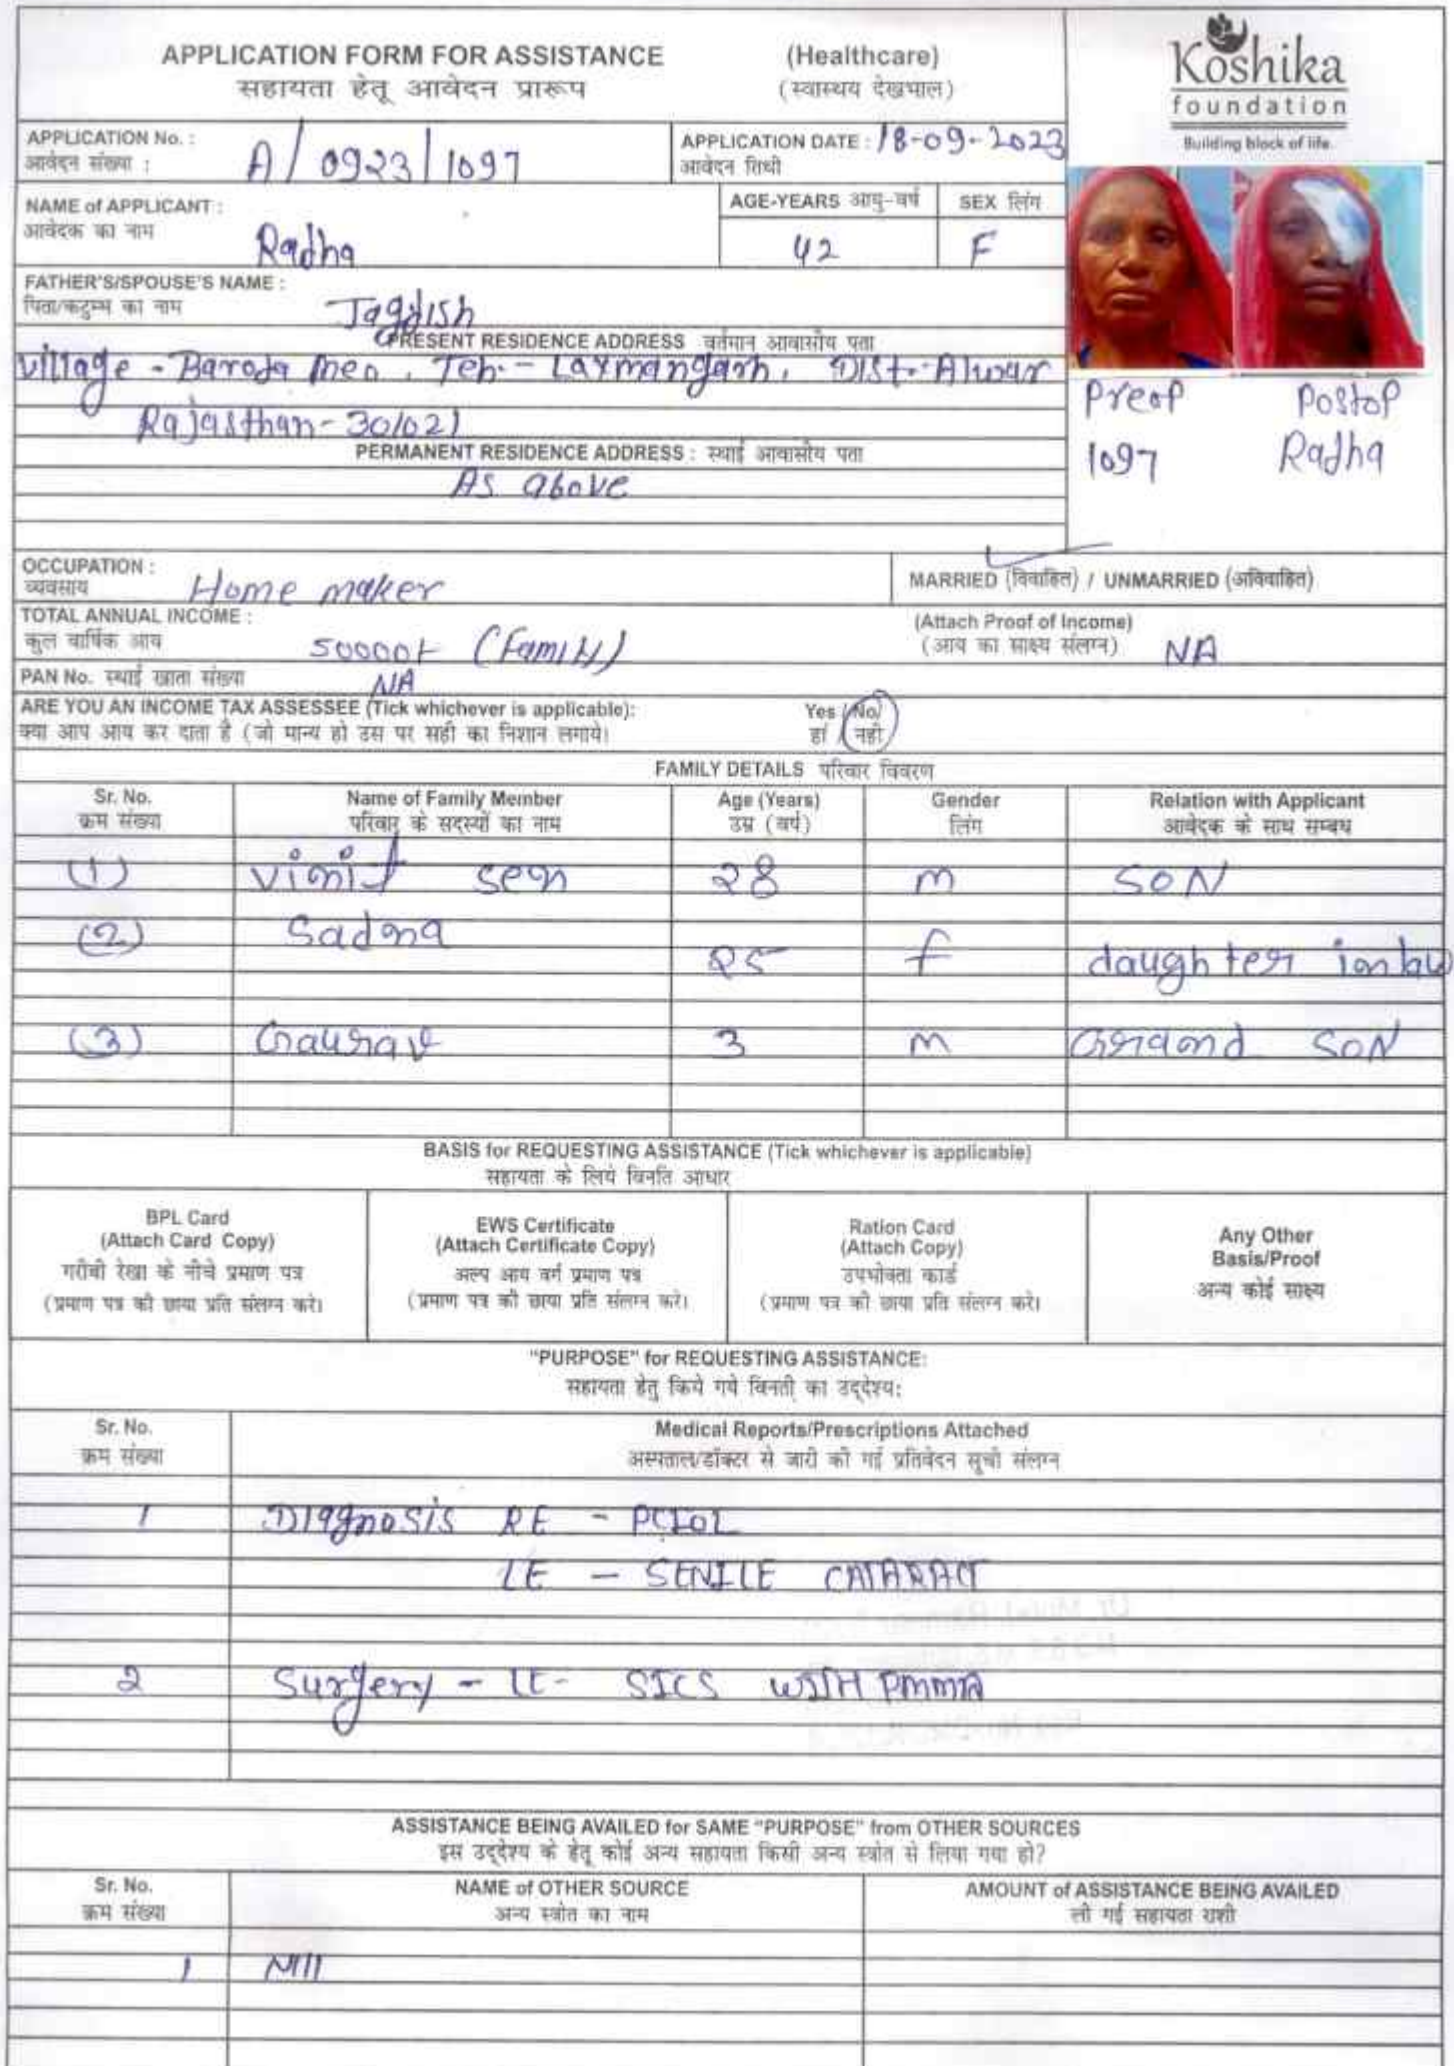 APPLICATION FORM FOR ASSISTANCE (Healthcare)
सहायता हेतू आवेदन प्रारूप (स्वास्थय देखभाल)
Koshika
foundation
Building block of life.
APPLICATION No. : A/0923/1097
आवेदन संख्या :
APPLICATION DATE : 18-09-2023
आवेदन तिथी
NAME of APPLICANT : Radha
आवेदक का नाम
AGE-YEARS आयु-वर्ष 42
SEX लिंग F
FATHER'S/SPOUSE'S NAME : Jagdish
पिता/कटुम्भ का नाम
PRESENT RESIDENCE ADDRESS वर्तमान आवासीय पता
Village - Baroda Meo, Teh.- Laxmangarh, Dist.- Alwar
Rajasthan - 301021
PERMANENT RESIDENCE ADDRESS : स्थाई आवासीय पता
As above
Preop Postop
1097 Radha
OCCUPATION : Home maker
व्यवसाय
MARRIED (विवाहित) / UNMARRIED (अविवाहित)
TOTAL ANNUAL INCOME : 50000/- (Family)
कुल वार्षिक आय
(Attach Proof of Income)
(आय का साक्ष्य संलग्न) NA
PAN No. स्थाई खाता संख्या NA
ARE YOU AN INCOME TAX ASSESSEE (Tick whichever is applicable): Yes / No
क्या आप आय कर दाता है (जो मान्य हो उस पर सही का निशान लगाये। हां / नही
FAMILY DETAILS परिवार विवरण
Sr. No. Name of Family Member Age (Years) Gender Relation with Applicant
क्रम संख्या परिवार के सदस्यों का नाम उम्र (वर्ष) लिंग आवेदक के साथ सम्बध
(1) vinit sen 28 m SON
(2) Sadna 25 f daughter inlaw
(3) Gaurav 3 m Grand SON
BASIS for REQUESTING ASSISTANCE (Tick whichever is applicable)
सहायता के लिये विनति आधार
BPL Card
(Attach Card Copy)
गरीबी रेखा के नीचे प्रमाण पत्र
(प्रमाण पत्र की छाया प्रति संलग्न करे।
EWS Certificate
(Attach Certificate Copy)
अल्प आय वर्ग प्रमाण पत्र
(प्रमाण पत्र की छाया प्रति संलग्न करे।
Ration Card
(Attach Copy)
उपभोक्ता कार्ड
(प्रमाण पत्र की छाया प्रति संलग्न करे।
Any Other
Basis/Proof
अन्य कोई साक्ष्य
"PURPOSE" for REQUESTING ASSISTANCE:
सहायता हेतु किये गये विनती का उद्देश्य:
Sr. No. Medical Reports/Prescriptions Attached
क्रम संख्या अस्पताल/डॉक्टर से जारी की गई प्रतिवेदन सूची संलग्न
1 Diagnosis RE - PCIOL
LE - SENILE CATARACT
2 Surgery - LE - SICS WITH PMMA
ASSISTANCE BEING AVAILED for SAME "PURPOSE" from OTHER SOURCES
इस उद्देश्य के हेतू कोई अन्य सहायता किसी अन्य स्त्रोत से लिया गया हो?
Sr. No. NAME of OTHER SOURCE AMOUNT of ASSISTANCE BEING AVAILED
क्रम संख्या अन्य स्त्रोत का नाम ली गई सहायता राशी
1 Nill